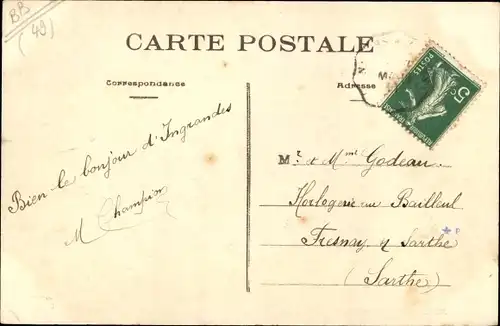 BB
(49)
CARTE POSTALE
Correspondance
Adresse
POSTES
5c
Bien le bonjour d'Ingrandes
M Champion
Mr et Mme Godeau
Horlogerie au Bailleul
Fresnay s/ Sarthe
(Sarthe)